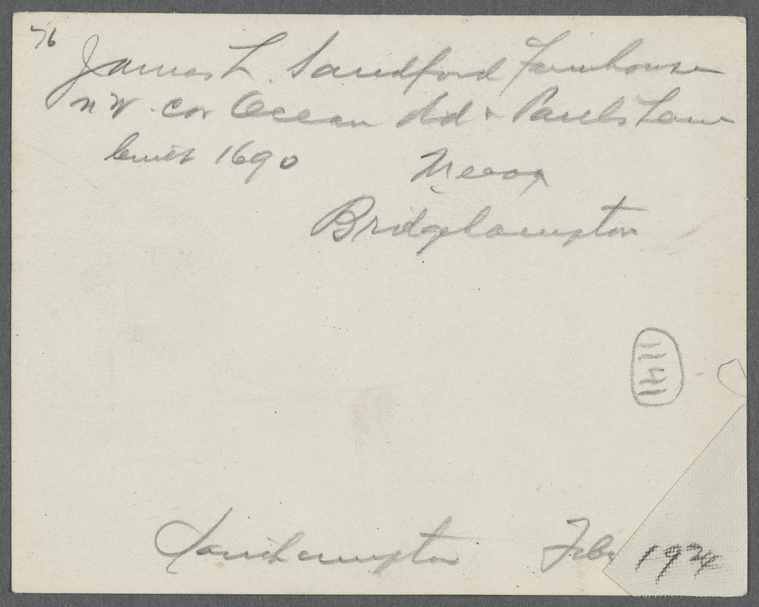 76
James L. Sandford Farmhouse
NW. cor Ocean Rd & Pauls Lane
built 1690 Mecox
Bridgehampton
1141
Southampton Feb 1924